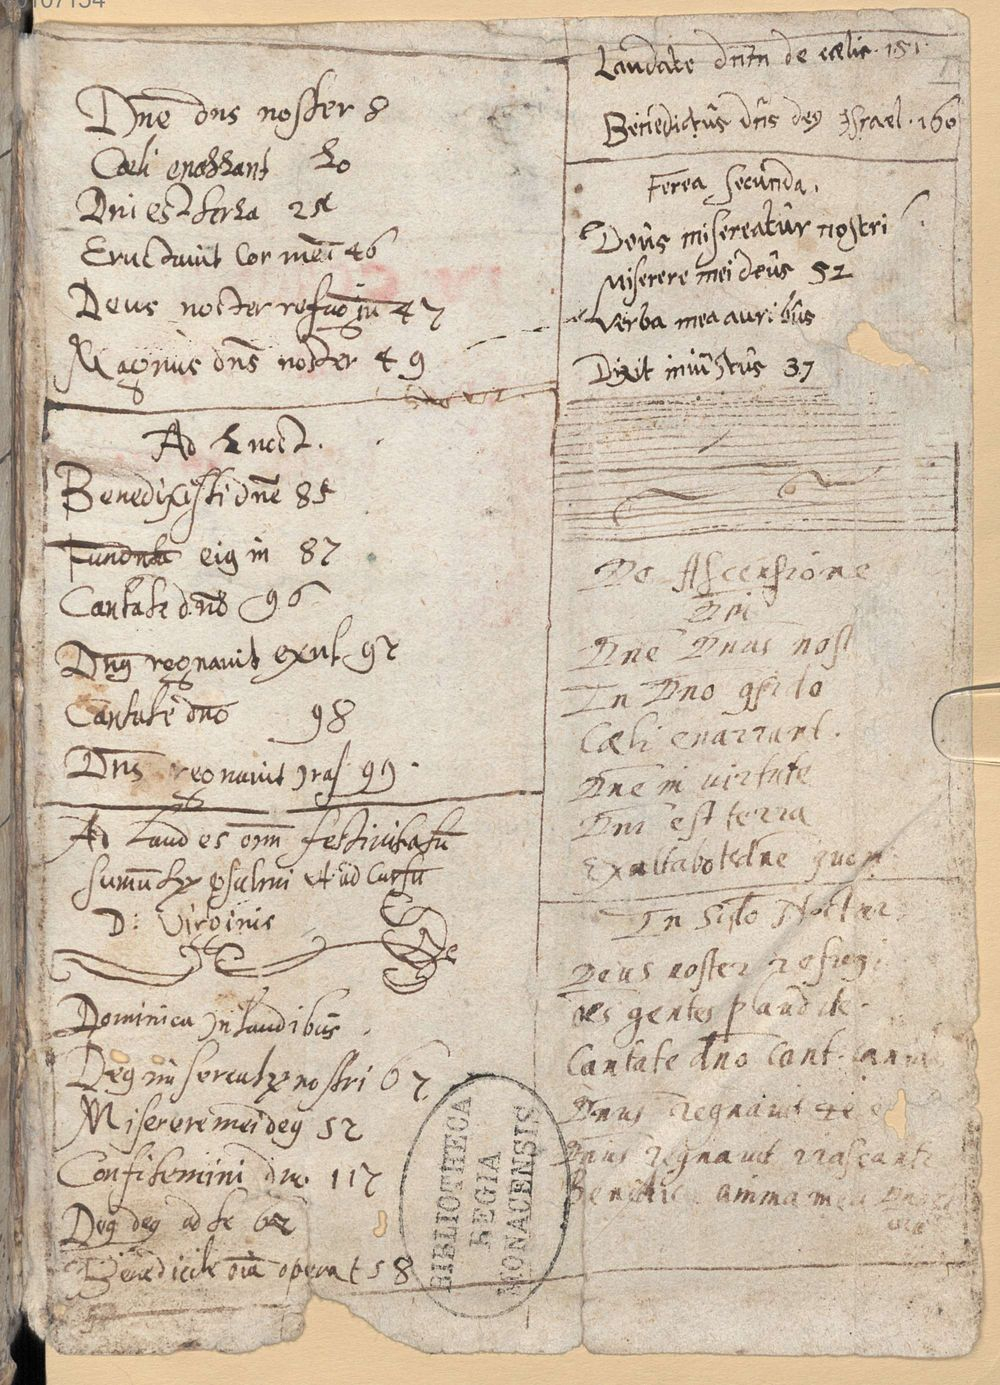 Dn̄e dns noster 8
Cœli enarrant
Dn̄i est terra
Eructauit Cor meū 46
Deus noster refugiū 47
Magnus dn̄s noster 49
Ad Noct.
Benedixisti dn̄e 85
Fundata eig in 87
Cantate dn̄o 96
Dn̄g regnauit exult 97
Cantate dn̄o 98
Dn̄s regnauit iras 99.
Ad Laudes om̄ festiuitatū
sumūtur psalmi ad Cursū
D: Virginis
Dominica In Laudibus.
Deg misereatur nostri 67
Miserere mei deg 52
Confitemini dn̄o 117
Deg deg ad te 62
Benedicite oīa opera 158
Laudate dn̄m de cœlis. 151.
Benedictus dn̄s deg Israel. 160
Ferea Secunda.
Deus misereatur nostri
Miserere mei deus 52
Verba mea auribus
Dixit iniustus 37
De Ascensione
Dn̄i
Dn̄e Dnus nost
In Dno
Cœli enarrant.
Dn̄e in virtute
Dn̄i est terra
Exaltabo te dn̄e quon
In Noctur
Deus noster refugi
oēs gentes plaudite.
Cantate dn̄o Cant.
Dnus regnauit
Dnus regnauit irascant
Benedic anima mea
BIBLIOTHECA
REGIA
MONACENSIS